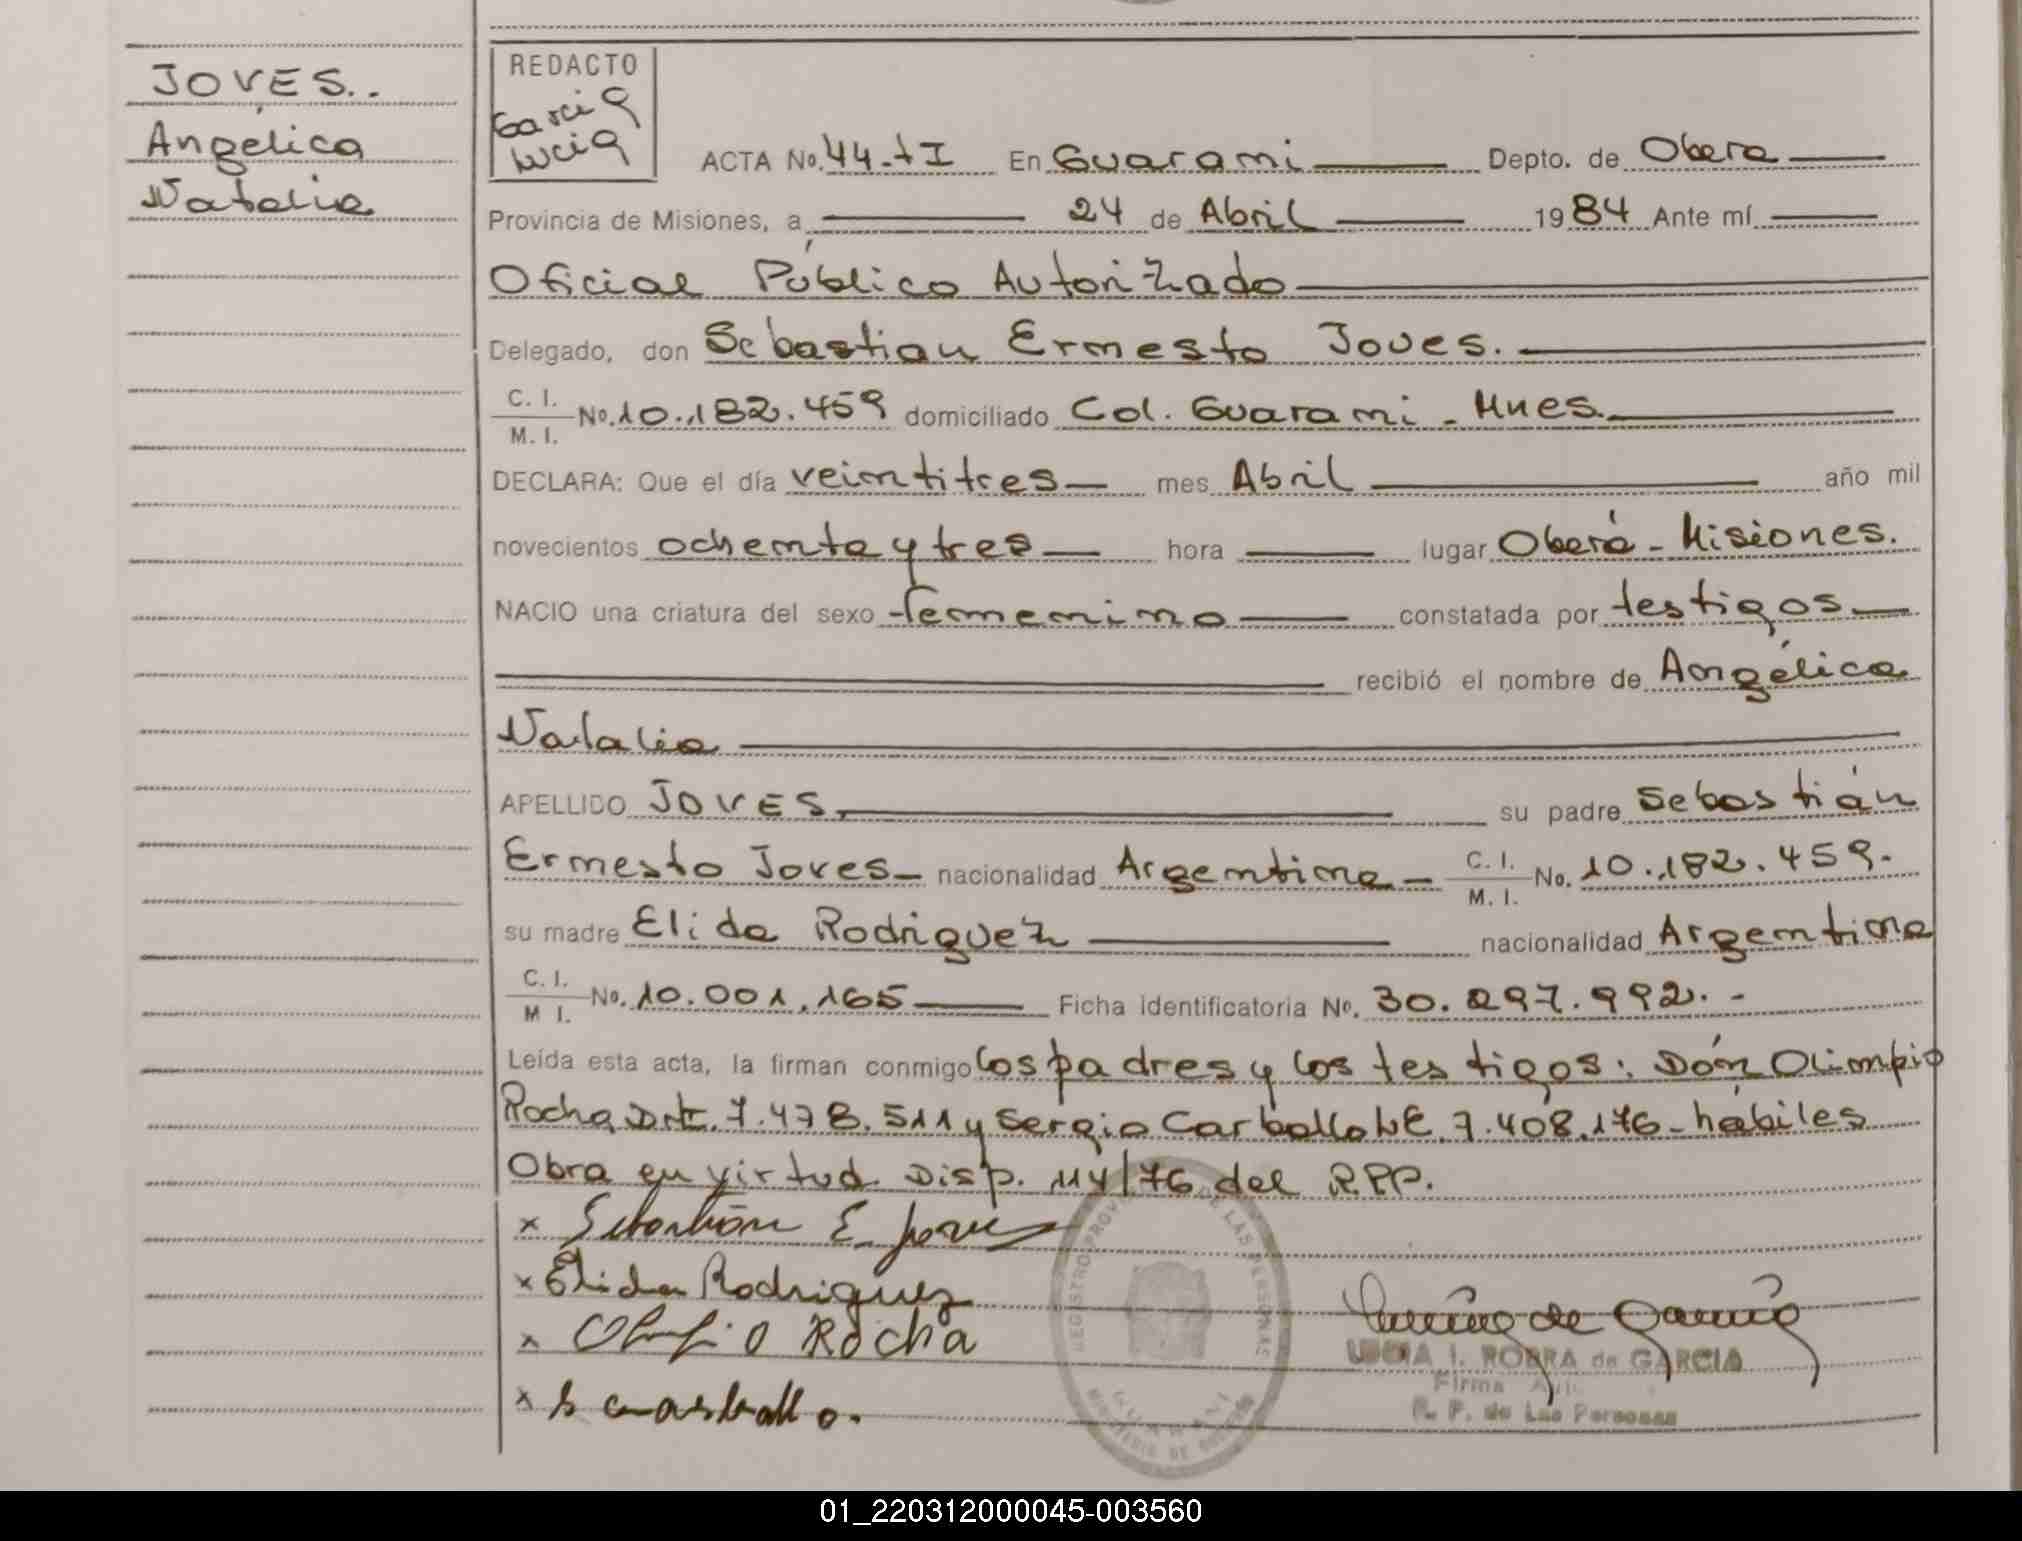 JOVES..
Angélica
Natalia
REDACTO
Garcia
Lucia
ACTA No. 44-tI En Guarani Depto. de Obera
Provincia de Misiones, a 24 de Abril 1984 Ante mí
Oficial Público Autorizado
Delegado, don Sebastian Ernesto Joves.
C. I.
M. I. No. 10.182.459 domiciliado Col. Guarani - Mnes.
DECLARA: Que el día veintitres mes Abril año mil
novecientos ochenta y tres hora lugar Oberá - Misiones.
NACIO una criatura del sexo femenino constatada por testigos
recibió el nombre de Angélica
Natalia
APELLIDO JOVES su padre Sebastián
Ernesto Joves nacionalidad Argentina C. I. M. I. No. 10.182.459.
su madre Elida Rodriguez nacionalidad Argentina
C. I. M I. No. 10.001.165 Ficha identificatoria No. 30.297.992.-
Leída esta acta, la firman conmigo los padres y los testigos: Dón Olimpio
Rocha 7.478.511 y Sergio Carballo LE. 7.408.176-hábiles
Obra en virtud. Disp. 114/76 del RPP.
x Sebastián E. Joves
x Elida Rodriguez
x Olimpio Rocha
x S carballo.
REGISTRO PROVINCIAL DE LAS PERSONAS
GUARANI
MINISTERIO DE GOBIERNO
LUCIA I. ROBRA de GARCIA
Firma Aut.
R. P. de Las Personas
01_220312000045-003560